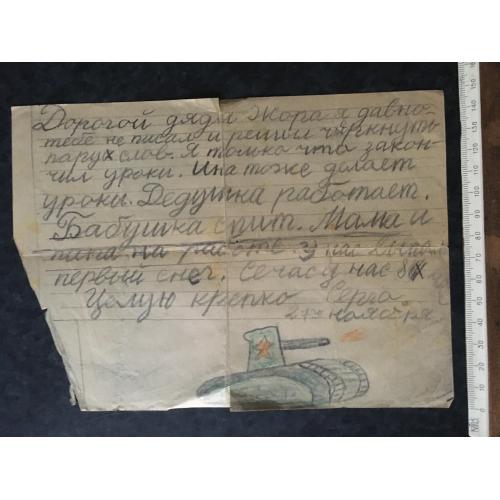 Дорогой дядя Жора я давно-
тебе не писал и решил чиркнуть
пару слов. Я только что закон-
чил уроки. Ина тоже делает
уроки. Дедушка работает.
Бабушка спит. Мама и
папа на работе. У нас выпал
первый снег. Сечас у нас
Целую крепко Серго
ноября.